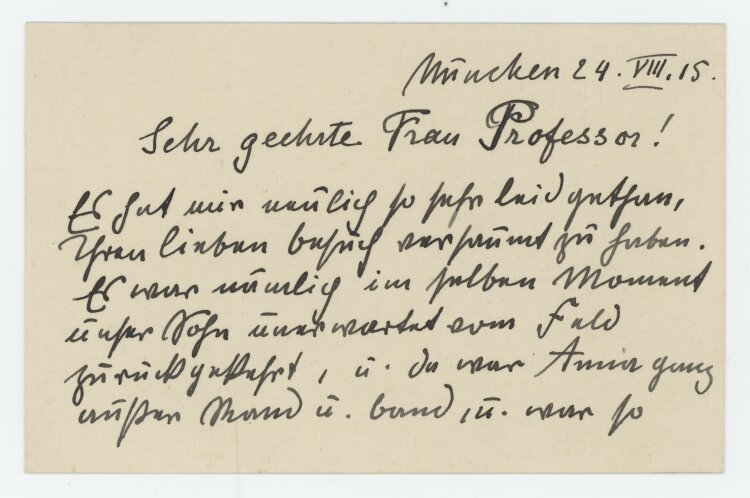 München 24. VIII. 15.
Sehr geehrte Frau Professor!
Es hat mir neulich so sehr leid gethan,
Ihren lieben besuch versäumt zu haben.
Es war nämlich im selben Moment
unser Sohn unerwartet vom Feld
zurückgekehrt, u. da war Anna ganz
außer Rand u. band, u. war so